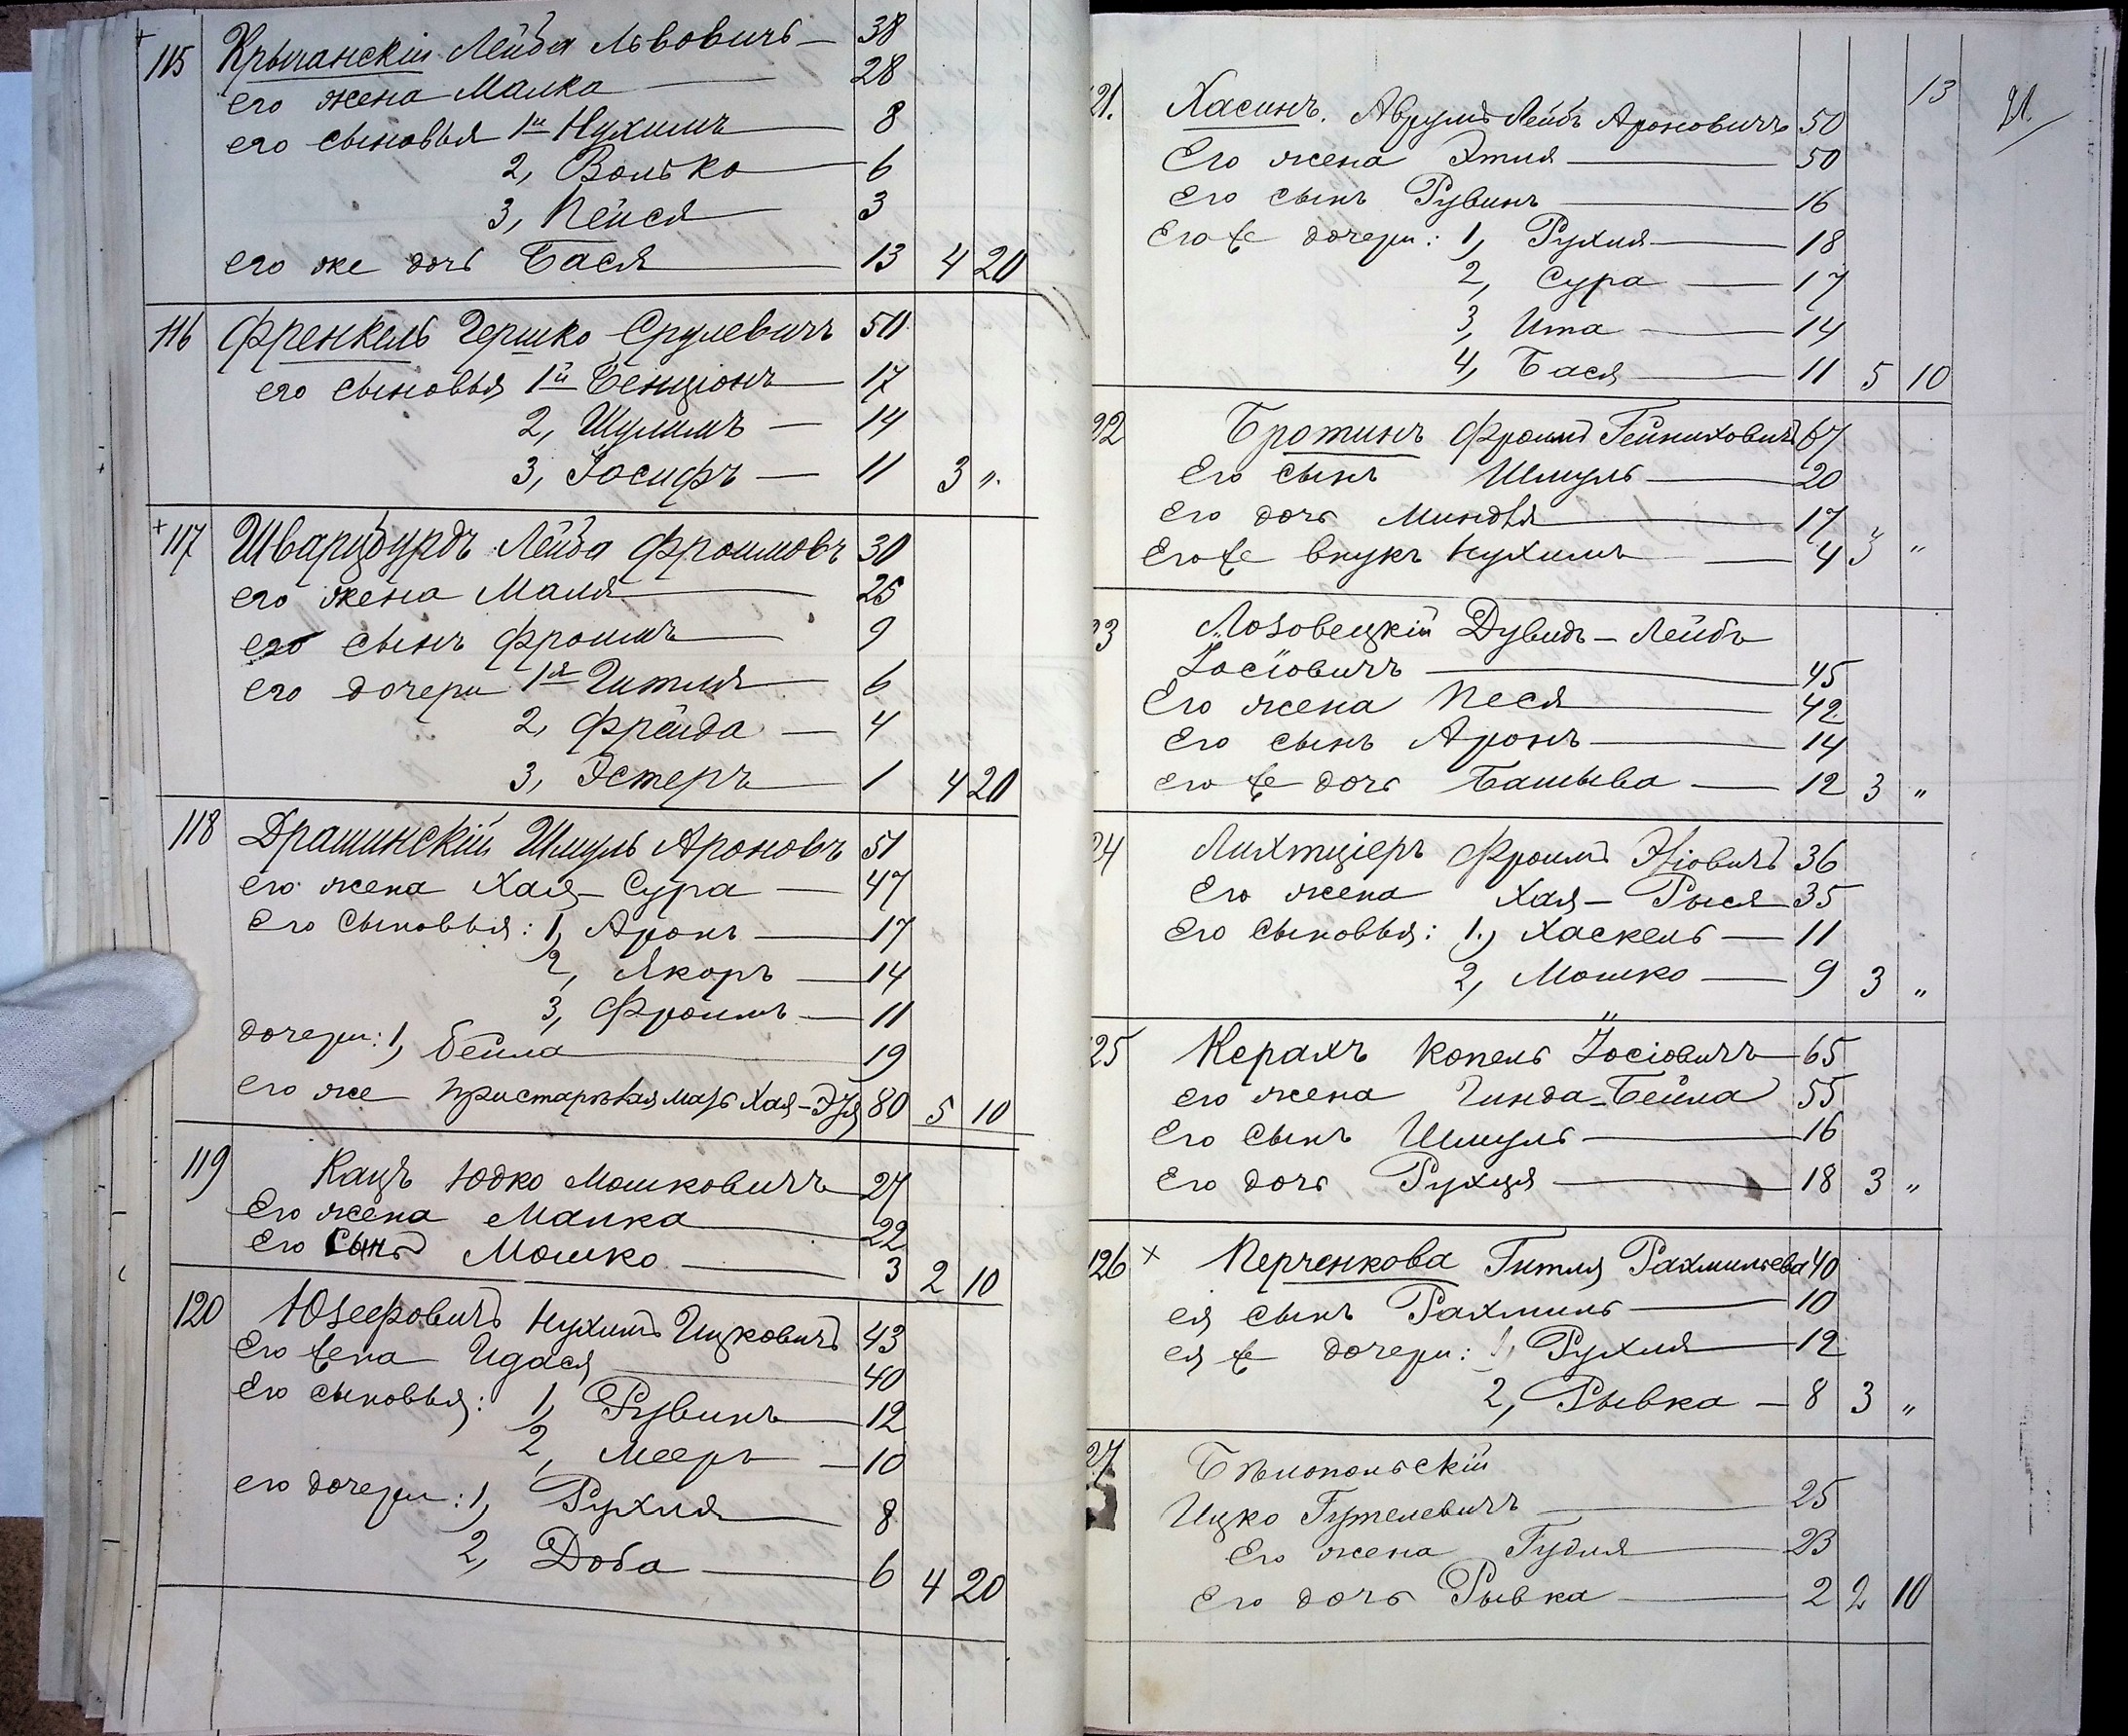 + 115 Крычанскій Лейба Львовичъ — 38
его жена Малка — 28
его сыновья 1й Нухимъ — 8
2, Волько — 6
3, Пейся — 3
его же дочь Бася — 13 4 20
116 Френкель Гершко Срулевичъ 50
его сыновья 1й Бенціонъ — 17
2, Шулимъ — 14
3, Іосифъ — 11 3 „
+ 117 Шварцбурдъ Лейба Фроимовъ 30
его жена Маля — 25
его сынъ Фроимъ — 9
его дочери 1я Гитля — 6
2, Фрейда — 4
3, Эстеръ — 1 4 20
118 Драшинскій Шмуль Ароновъ 51
его жена Хая-Сура — 47
Его сыновья: 1, Аронъ — 17
2, Якоръ — 14
3, Фроимъ — 11
дочери: 1, Бейла — 19
его же престарѣлая мать Хая-Эдя 80 5 10
119 Кацъ Юдко Мошковичъ — 27
Его жена Малка — 22
Его сынъ Мошко — 3 2 10
120 Юзефовичъ Нухимъ Ицковичъ 43
Его жена Идася — 40
Его сыновья: 1, Рувинъ — 12
2, Мееръ — 10
его дочери: 1, Рухля — 8
2, Доба — 6 4 20
13 21.
21. Хасинъ. Аврумъ Лейбъ Ароновичъ 50
Его жена Этля — 50
Его сынъ Рувинъ — 16
Его же дочери: 1, Рухля — 18
2, Сура — 17
3, Ита — 14
4, Бася — 11 5 10
22 Бротинъ Фроимъ Гейниховичъ 67
Его сынъ Шмуль — 20
Его дочь Миндля — 17
Его же внукъ Нухимъ — 4 3 „
23 Лозовецкій Дувидъ-Лейбъ
Іосіовичъ — 45
Его жена Песя — 42
Его сынъ Аронъ — 14
его же дочь Башыва — 12 3 „
24 Лихтціеръ Фроимъ Эліовичъ 36
Его жена Хая-Рыся 35
Его сыновья: 1, Хаскель — 11
2, Мошко — 9 3 „
25 Керахъ Копель Іосіовичъ — 65
его жена Гинда-Бейла 55
Его сынъ Шмуль — 16
Его дочь Рухля — 18 3 „
126 × Перченкова Гитля Рахмильева 40
ея сынъ Рахмиль — 10
ея же дочери: 1, Рухля — 12
2, Рывка — 8 3 „
27 Бѣлопольскій
Ицко Гутелевичъ — 25
Его жена Гудля — 23
Его дочь Рывка — 2 2 10